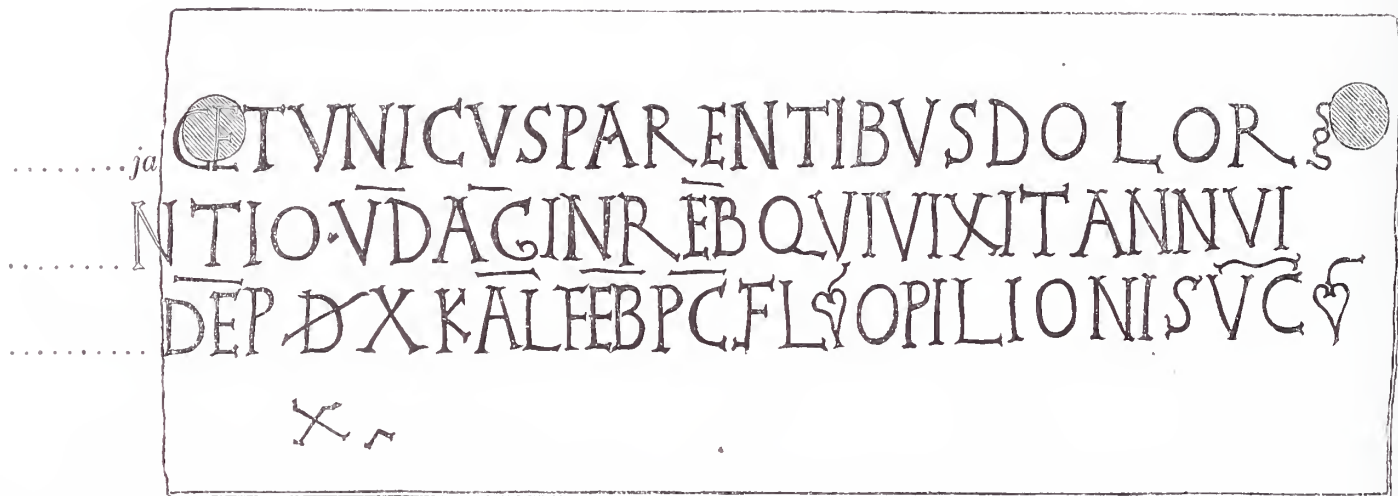 .........jaCETVNICVSPARENTIBVSDOLOR
.........NTIO·VDAGINREBQVIVIXITANNVI
..........DEP D X KALFEBPCFL❦OPILIONISVC❦
X